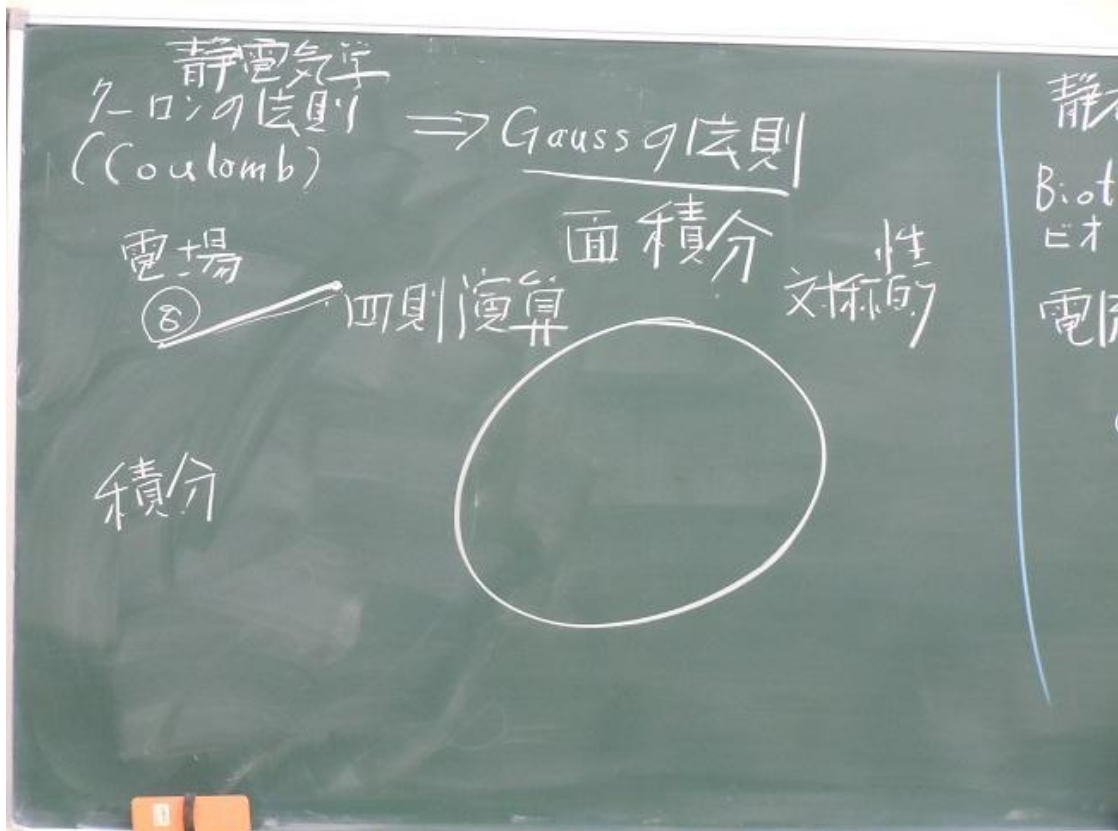 静電気学
クーロンの法則
(Coulomb)
⇒ Gaussの法則
面積分
電場
⑧
四則演算
性
対称的
積分
静
Biot
ビオ
電